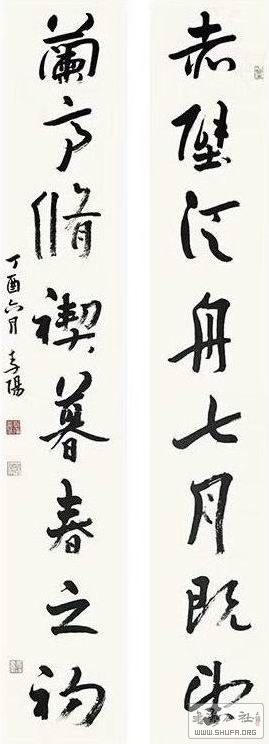 赤壁泛舟七月既望
蘭亭脩禊暮春之初
丁酉六月孝陽
WWW.SHUFA.ORG